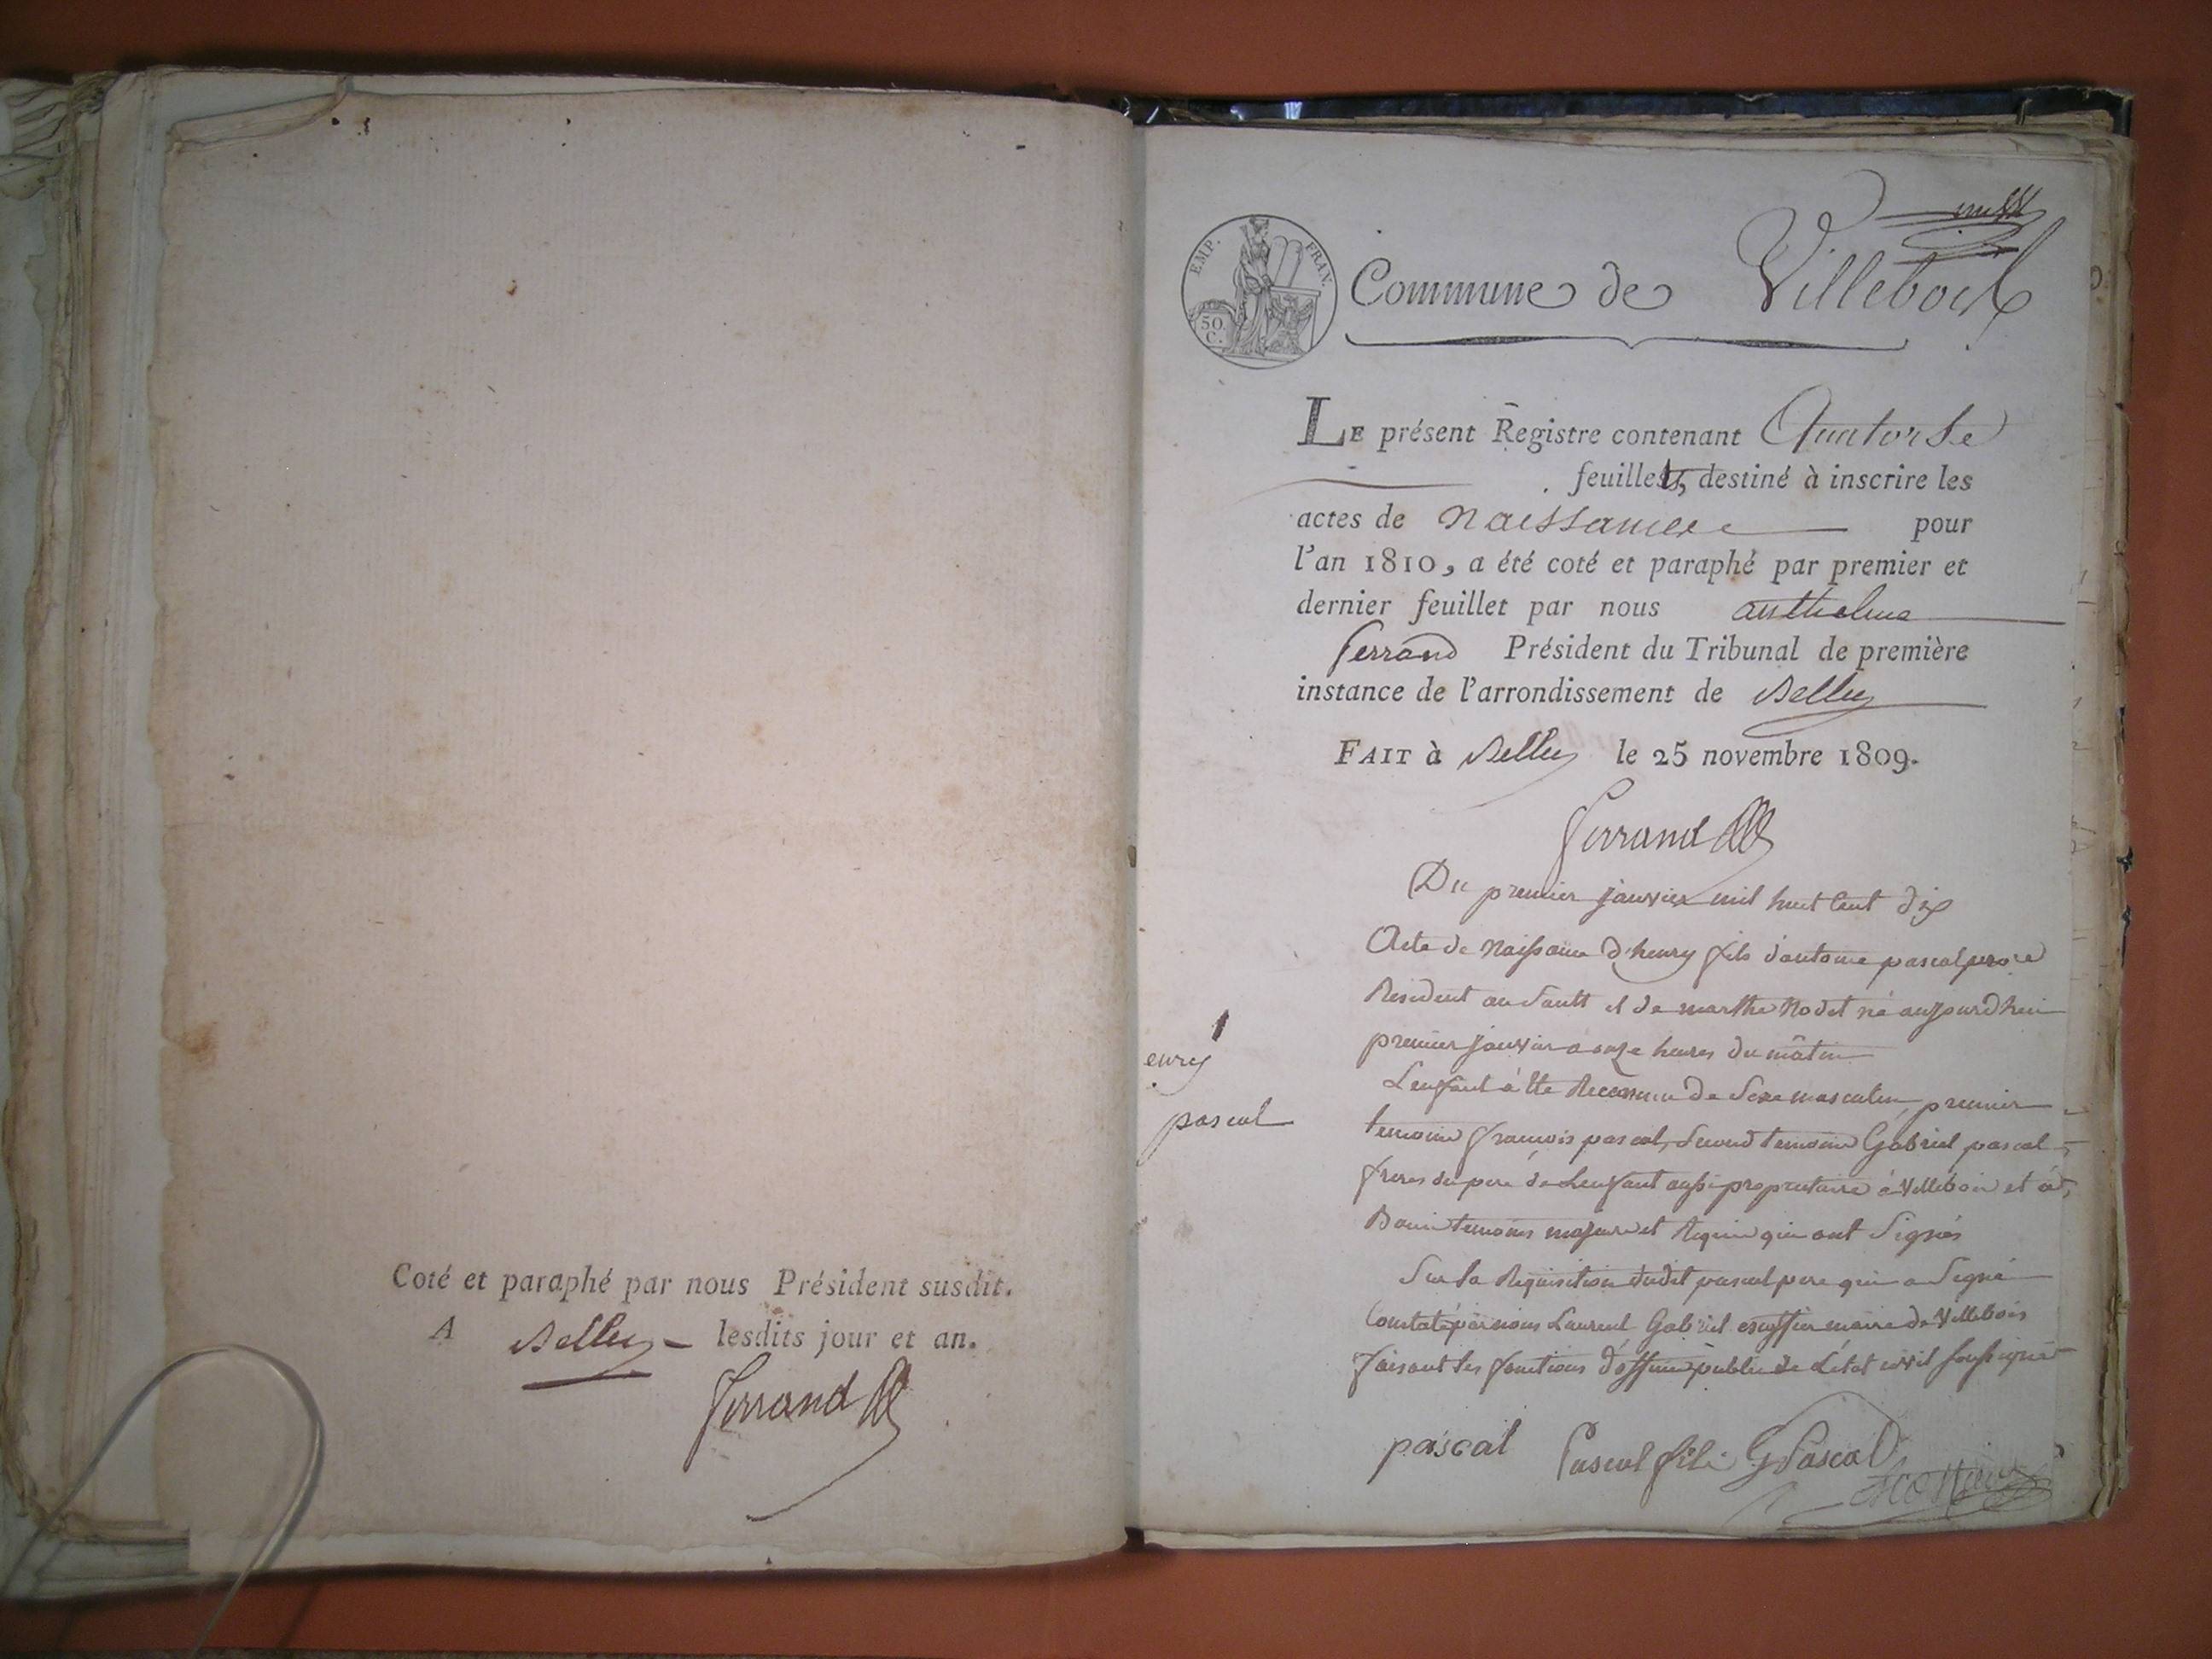 Coté et paraphé par nous Président susdit.
A Belley lesdits jour et an.
Ferrand
EMP. FRAN.
50.
C.
Commune de Villebois
LE présent Registre contenant Quatorse
feuillets, destiné à inscrire les
actes de Naissance pour
l'an 1810, a été coté et paraphé par premier et
dernier feuillet par nous anthelme
ferrand Président du Tribunal de première
instance de l'arrondissement de Belley
FAIT à Belley le 25 novembre 1809.
Ferrand
Du premier janvier mil huit cent dix
1
enry
pascal
Acte de Naissance d'henry fils d'antoine pascal
Resident au Sault et de marthe Nodet né aujourdhui
premier janvier a onze heures du mâtin
Lenfant à Ete Reconnu de Sexe masculin, premier
temoin françois pascal, Second temoin Gabriel pascal
freres du pere de Lenfant aussi proprietaire à Villebois et à
Bouis temoins majeurs et Requis qui ont Signés
Sur la Requisition dudit pascal pere qui a Signé
Constaté par nous Laurent Gabriel escoffier maire de Villebois
faisant les fonctions d'officier public de L'état civil soussigné
pascal Pascal fils G Pascal